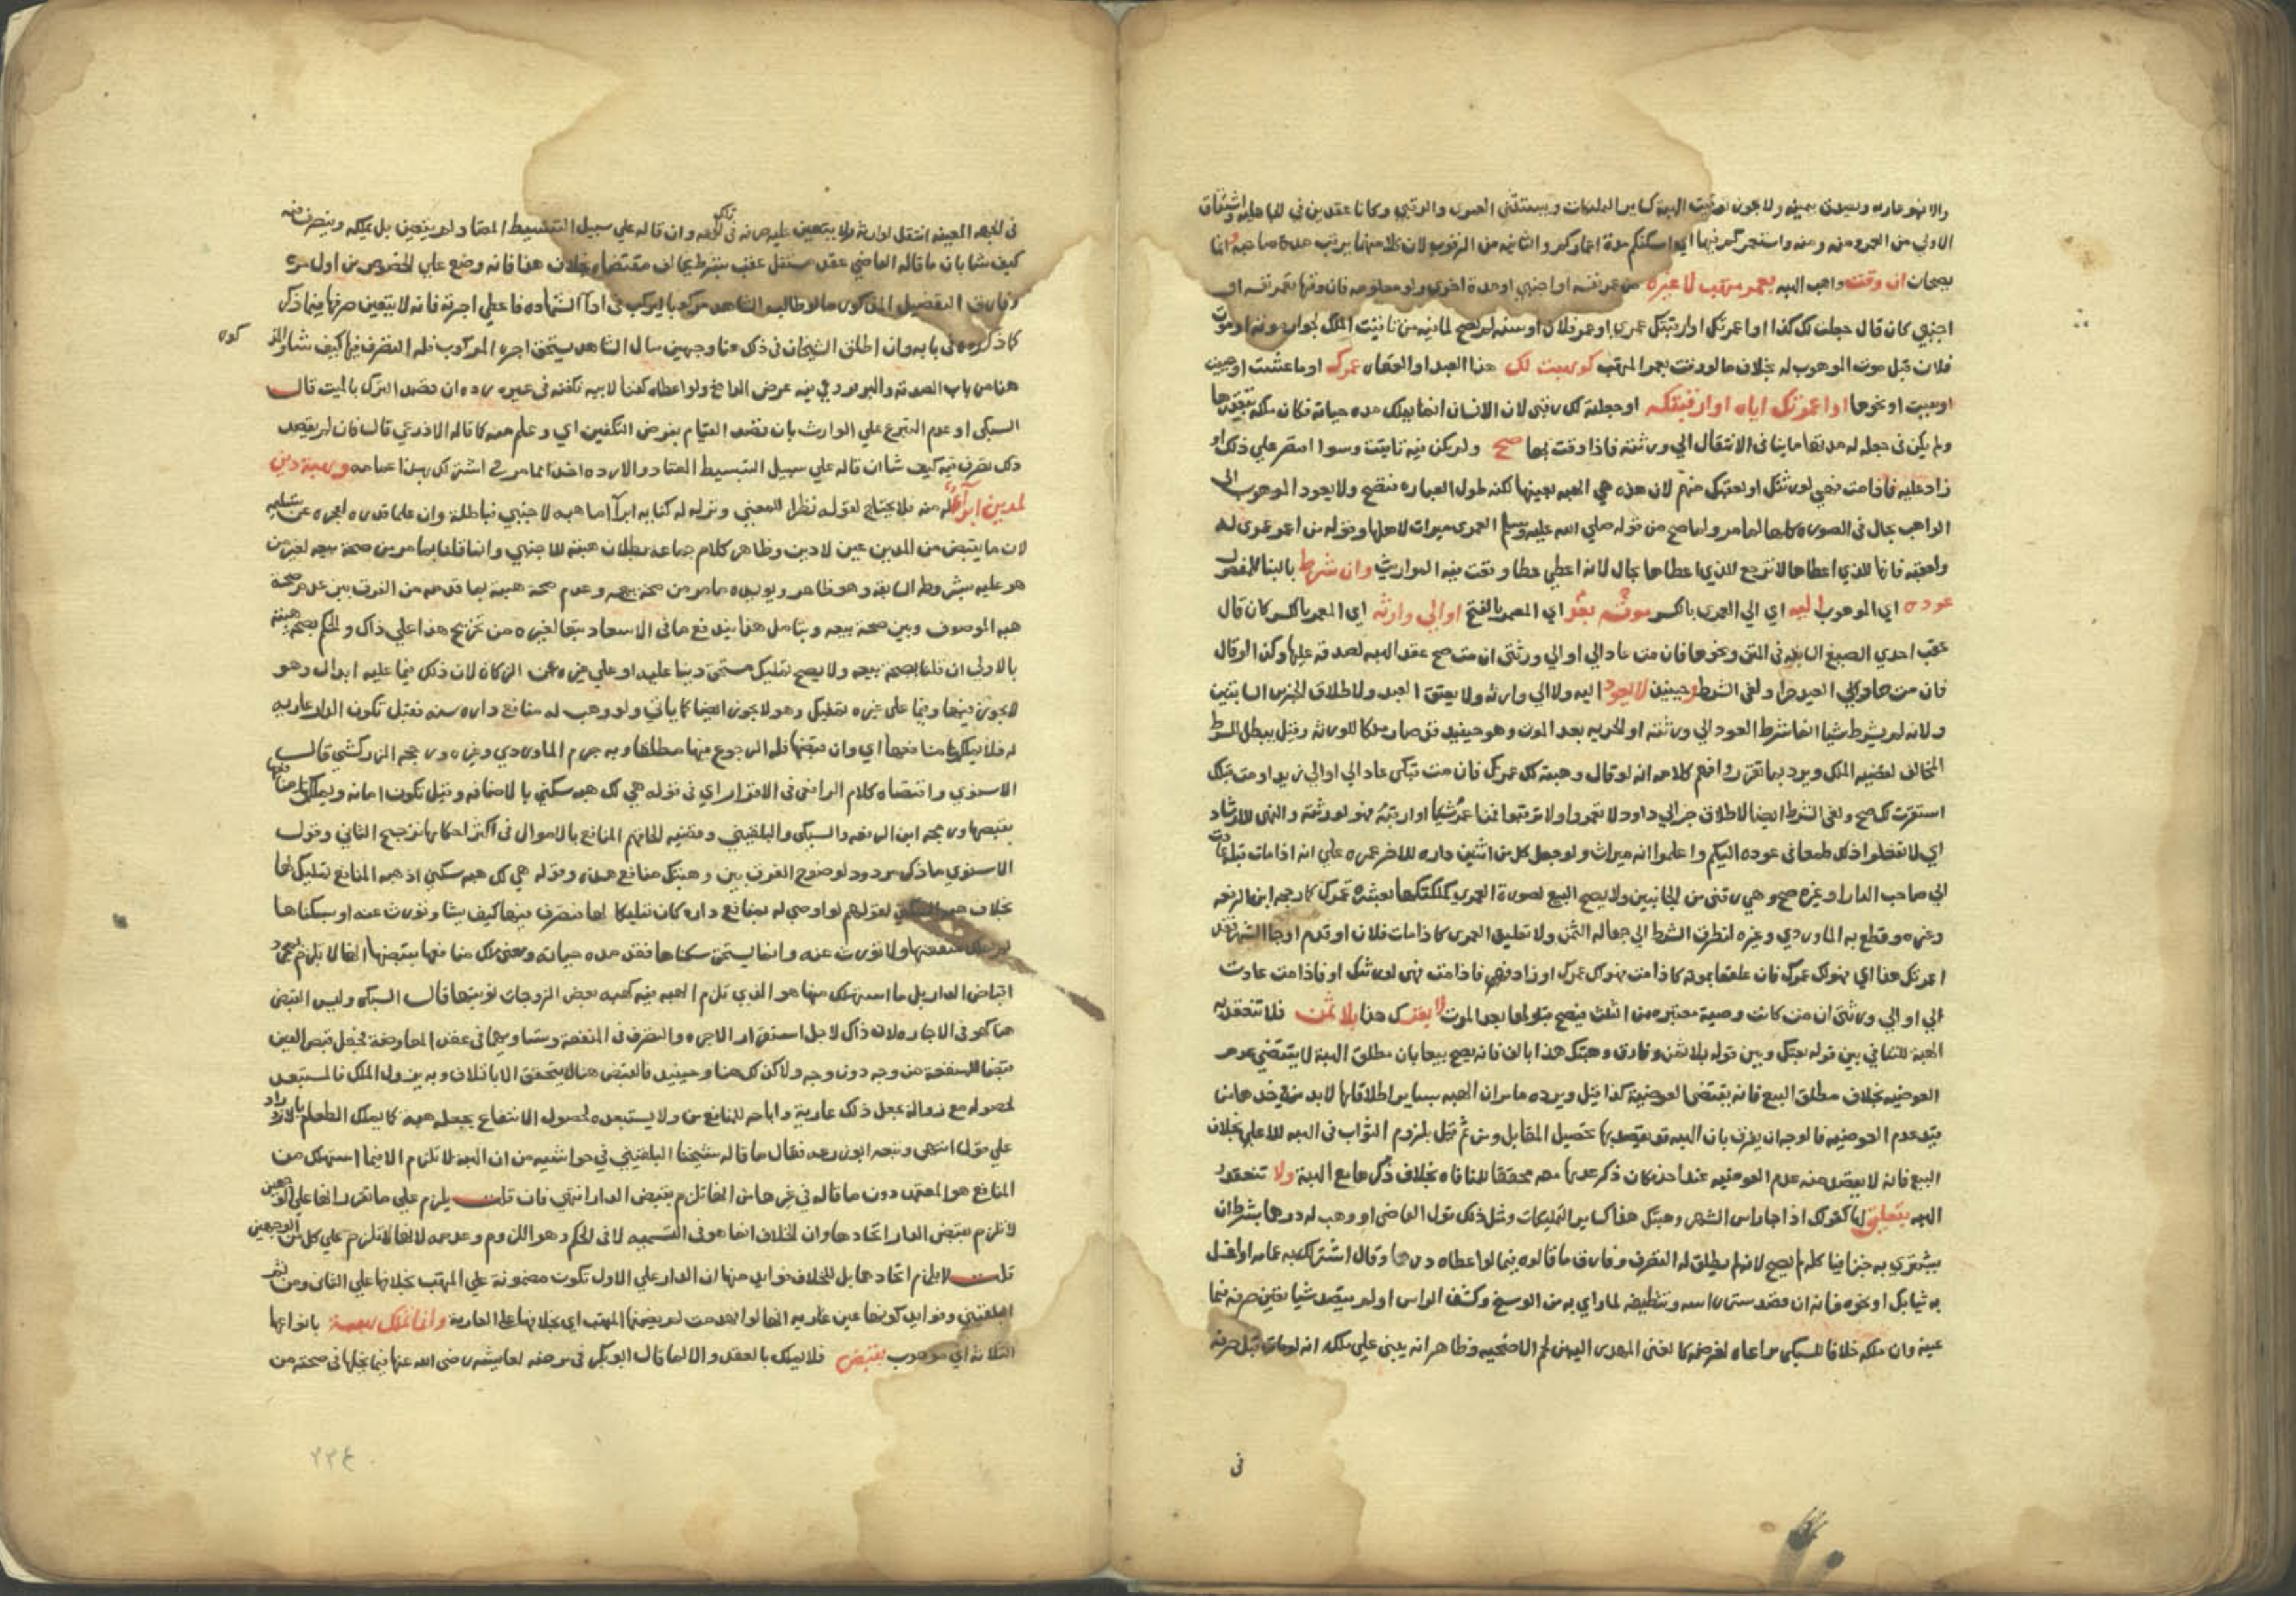 والا فهو عاريه ويصدق بيمينه ولا يجوز توقيت الهبة كساير التمليكات ويستثنى العمرى والرقبى وكانا عقدين في الجاهلية
الاولى من العمر
بصحان ان وقت واهب الهبه بعمر متهب لا غيره من عمر نفسه او اجنبي او مدة اخرى ولو معلومه فان وقتها بعمر نفسه او
اجنبي كان قال جعلت لك كذا او اعمرتك او ارقبتك عمري او عمر فلان او سنه لم يصح لما فيه من تاقيت الملك لجواز موته او موت
فلان قبل موت الموهوب له بخلاف ما لو وقت بعمر المتهب كوهبت لك هذا العبد او العقار عمرك او ما عشت او حييت
او بقيت او نحوها او اعمرتك اياه او ارقبتكه او جعلته لك رقبى لان الانسان انما يملك مده حياته فكان ملكه
ولم يكن في جعله له مدتها ما ينافي الانتقال الى ورثته فاذا وقت بها صح ولم يكن فيه تاقيت وسوا اقتصر على ذلك او
زاد عليه فاذا مت فهي لورثتك او لعقبك منهم لان هذه هي الهبه بعينها لكنه طول العباره فتصح ولا يعود الموهوب الى
الواهب بحال في الصوره كلها لما مر ولما صح من قوله صلى الله عليه وسلم العمرى ميراث لاهلها وقوله من اعمر عمرى له
ولعقبه فانها للذي اعطاها لا ترجع للذي اعطاها بحال لانه اعطى عطا وقعت فيه المواريث وان شرط بالبنا للمفعول
عوده اي الموهوب اليه اي الى المعمر بالكسر موته بعد اي المعمر بالفتح او الى وارثه اي المعمر بالكسر كان قال
عقب احدى الصيغ السابقه في المتن ونحوها فان مت عاد الي او الى ورثتي ان مت صح عقد الهبه لصدقه عليها وكذا لو قال
فان مت فهو حر لغى الشرط وحينئذ لا يعود اليه ولا الى وارثه ولا يعتق العبد ولاطلاق الخبرين السابقين
ولانه لم يشرط شيا انما شرط العود الى ورثته او الحريه بعد الموت وهو حينئذ قد صار ملكا للورثه وقيل يبطل للشرط
المخالف لقضيه الملك ويرد بما تقرر وافهم كلامه انه لو قال وهبته لك عمرك فان مت قبلي عاد الي او الى زيد او مت قبلك
استقرت لك صح ولغى الشرط ايضا لاطلاق خبر ابي داود لا تعمروا ولا ترقبوا فمن اعمر شيا او ارقبه فهو لورثته والنهى للارشاد
اي لا تفعلوا ذلك طمعا في عوده اليكم واعلموا انه ميراث ولو جعل كل من اثنين داره للاخر عمره على انه اذا مات قبله عادت
الى صاحب الدار او غيره صح وهي رقبى من الجانبين ولا يصح البيع بصورة العمرى كملكتكها بعشره عمرك كما رجحه ابن الرفعه
وغيره وقطع به الماوردي وغيره لتطرق الشرط الى جهاله الثمن ولا تعليق العمرى كاذا مات فلان او قدم او جا الشهر فقد
اعمرتك هذا اي فهو لك عمرك فان علقها بموته كاذا مت فهو لك عمرك او زاد فهي فاذا مت فهي لورثتك او فاذا مت عادت
الي او الى ورثتي ان مت كانت وصية معتبره من الثلث فيصح قبولها بعد الموت لا بعتك هذا بلا ثمن فلا تنعقد به
الهبة للتنافي بين قوله بعتك وبين قوله بلا ثمن وفارق وهبتك هذا بالف فانه يصح بيعا بان مطلق الهبة لا يقتضي عدم
العوضيه بخلاف مطلق البيع فانه يقتضي العوضية كذا قيل ويرده ما مر ان الهبه بساير اطلاقاتها لابد من
قيد عدم العوضيه فالوجه ان يفرق بان الهبه قد يقصد بها تحصيل المقابل ومن ثم قيل بلزوم الثواب في الهبه للاعلى بخلاف
البيع فانه لا يقصد منه عدم العوضيه عند احد فكان ذكر عدمها معه محققا للمنافاه بخلاف ذكرها مع الهبة ولا تنعقد
الهبه بتعليق لها كقولك اذا جا راس الشهر وهبتك هذا كساير التمليكات ومثل ذلك قول القاضي او وهب له درهما بشرط ان
يشتري به خبزا فياكله لم يصح لانه لم يطلق له التصرف وفارق ما قالوه فيما لو اعطاه درهما وقال اشتر لك به عمامه او اغسل
به ثيابك او نحوه فانه ان قصد ستر راسه وتنظيفه لما راى به من الوسخ وكشف الراس او لم يقصد شيا تعين صرفه فيما
عينه وان ملكه خلافا للسبكي مراعاه لغرضه كما لغنى المهدى اليه من لحم الاضحيه وظاهر انه يعني على ملكه انه لو مات قبل صرفه
في
في الجهه المعينه انتقل لوارثه ولا يتعين عليه صرفه في تلك الجهه وان قاله على سبيل التبسيط المعتاد لم يتعين بل يملكه ويتصرف فيه
كيف شا بان ما قاله القاضي عقد مستقل عقب بشرط يخالف مقتضاه بخلاف هذا فانه وضع على الخصوص من اول مره
وفارق التفصيل المذكور ما لو طالبه الشاهد مركوبا ليركب في ادا الشهاده فاعطى اجرته فانه لا يتعين صرفها فيما ذكر
كما ذكروه في بابه وان اطلق الشيخان في ذلك هنا وجهين بان الشاهد يستحق اجره المركوب فله التصرف فيها كيف شا والمذكور
هنا من باب الصدقه والبر فروعي فيه غرض الدافع ولو اعطاه كفنا لابيه فكفنه في غيره رده ان قصد التبرك بالميت قال
السبكي او عدم التبرع على الوارث بان قصد القيام بفرض التكفين اي وعلم منه كما قاله الاذرعي قال فان لم يقصد
ذلك تصرف فيه كيف شا ان قاله على سبيل التبسيط المعتاد والا رده اخذا مما مر في اشتر لك بهذا عمامه وهبة دين
لمدين ابرا له منه فلا يحتاج لقوله نظرا للمعنى وتركه له كنايه ابرا اما هبه لاجنبي فباطلة وان علما قدره لعجزه عن تسليمه
لان ما يقبض من المدين عين لا دين وظاهر كلام جماعه بطلان هبته للاجنبي وان قلنا بما مر من صحة بيعه لغير من
هو عليه بشروطه السابقه وهو ظاهر ويويده ما مر من صحة بيعه وعدم صحة هبته بما قدمته من الفرق بين عدم صحة
هبه الموصوف وبين صحة بيعه وبتامل هذا يندفع ما في الاسعاد تبعا لغيره من تخريج هذا على ذاك والحكم بصحة هبته
بالاولى ان قلنا بصحة بيعه ولا يصح تمليك مستحق دينا عليه او على غيره عن الزكاة لان ذلك فيما عليه ابدال وهو
لا يجوز فيها وفيما على غيره تمليك وهو لا يجوز ايضا كما ياتي ولو وهب له منافع داره سنه فقيل تكون الدار عاريه
له فلا يملك منافعها اي وان قبضها فله الرجوع فيها مطلقا وبه جزم الماوردي وغيره ورجحه الزركشي قال
الاسنوي واقتضاه كلام الرافعي في الاقرار اي في قوله هي لك هبه سكنى بالاضافه وقيل تكون امانه ويملك منافعها
بقبضها ورجحه ابن الرفعه والسبكي والبلقيني وقضيه الحاقهم المنافع بالاموال في اكثر احكامها ترجيح الثاني وقول
الاسنوي ما ذكر مردود لوضوح الفرق بين وهبتك منافع هذه وقوله هي لك هبه سكنى اذ هبه المنافع تمليك لها
بخلاف هبه السكنى لقولهم لو اوصى له بمنافع داره كان تمليكا لها فيتصرف فيها كيف يشا وتورث عنه او بسكناها
لم يملك منفعتها ولا تورث عنه وانما يستحق سكناها فقط مده حياته ومعنى ملك منافعها بقبضها انها لا تلزم بمجرد
اقباض الدار بل ما استهلك منها هو الذي تلزم الهبه فيه كهبه بعض الزوجات نوبتها قال السبكي وليس القبض
هنا كهو في الاجاره لان ذاك لاجل استقرار الاجره والتصرف في المنفعة وتساويهما في عقد المعاوضة فجعل قبض العين
قبضا للمنفعه من وجه دون وجه ولا كذلك هنا وحينئذ فالقبض هنا لا يتحقق الا بالاتلاف وبه يزول الملك فالمستبعد
لحصوله مع زواله يجعل ذلك عارية واباحه للمنافع ومن لا يستبعده لحصول الانتفاع يجعله هبه كما يملك الطعام بالازدراد
على قول انتهى وتبعه ابو زرعه فقال ما قاله شيخنا البلقيني في حواشيه من ان الهبه لا تلزم الا فيما استهلك من
المنافع هو المعتمد دون ما قاله في غيرها من انها تلزم بقبض الدار انتهى فان قلت يلزم على ما تقرر انها على الوجهين
لا تلزم بقبض الدار اتحادهما وان الخلاف انما هو في التسميه لا في الحكم وهو اللزوم وعدمه لانها لا تلزم على كل من الوجهين
قلت لا يلزم اتحادهما بل للخلاف فوايد منها ان الدار على الاول تكون مضمونة على المتهب بخلافها على الثاني ومن ثم
البلقيني وفوايد كونها عين عاريه انها لو انهدمت لم يضمنها المتهب اي بخلافها على العارية وانما تملك هبة بانواعها
الثلاثه اي موهوب بقبض فلا يملك بالعقد والا لما قال ابو بكر في مرضه لعايشه رضى الله عنها فيما نحلها في صحته من
٢٢٤